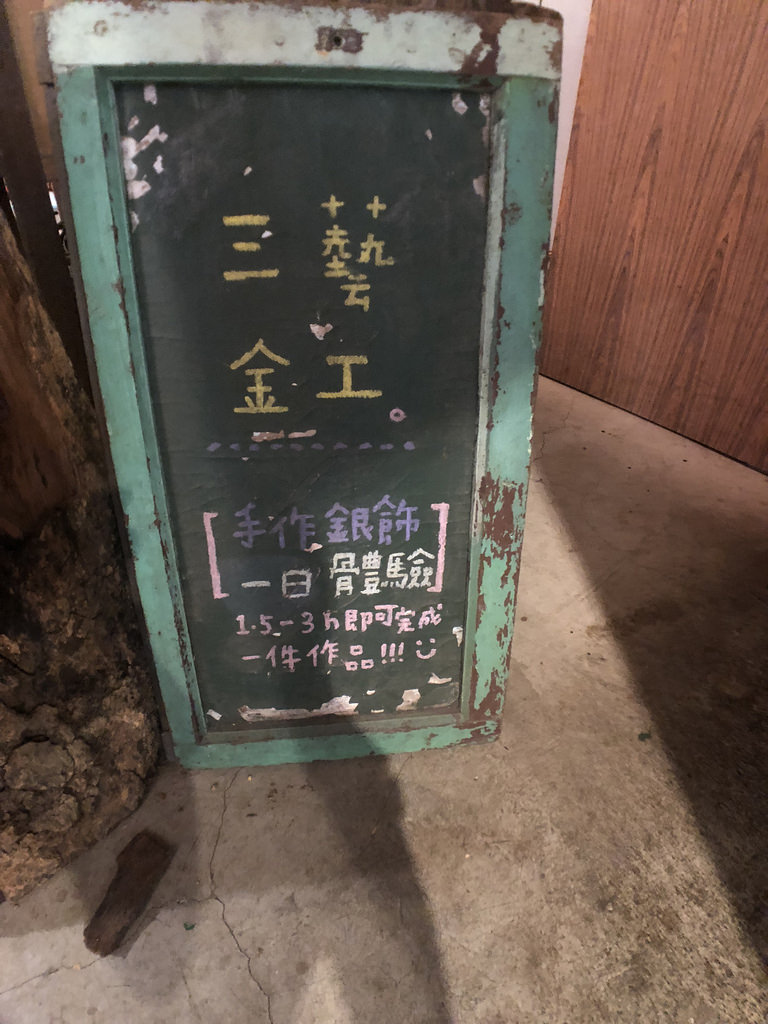 三藝
金工。
[手作銀飾
一日體驗]
1.5-3h即可完成
一件作品!!!